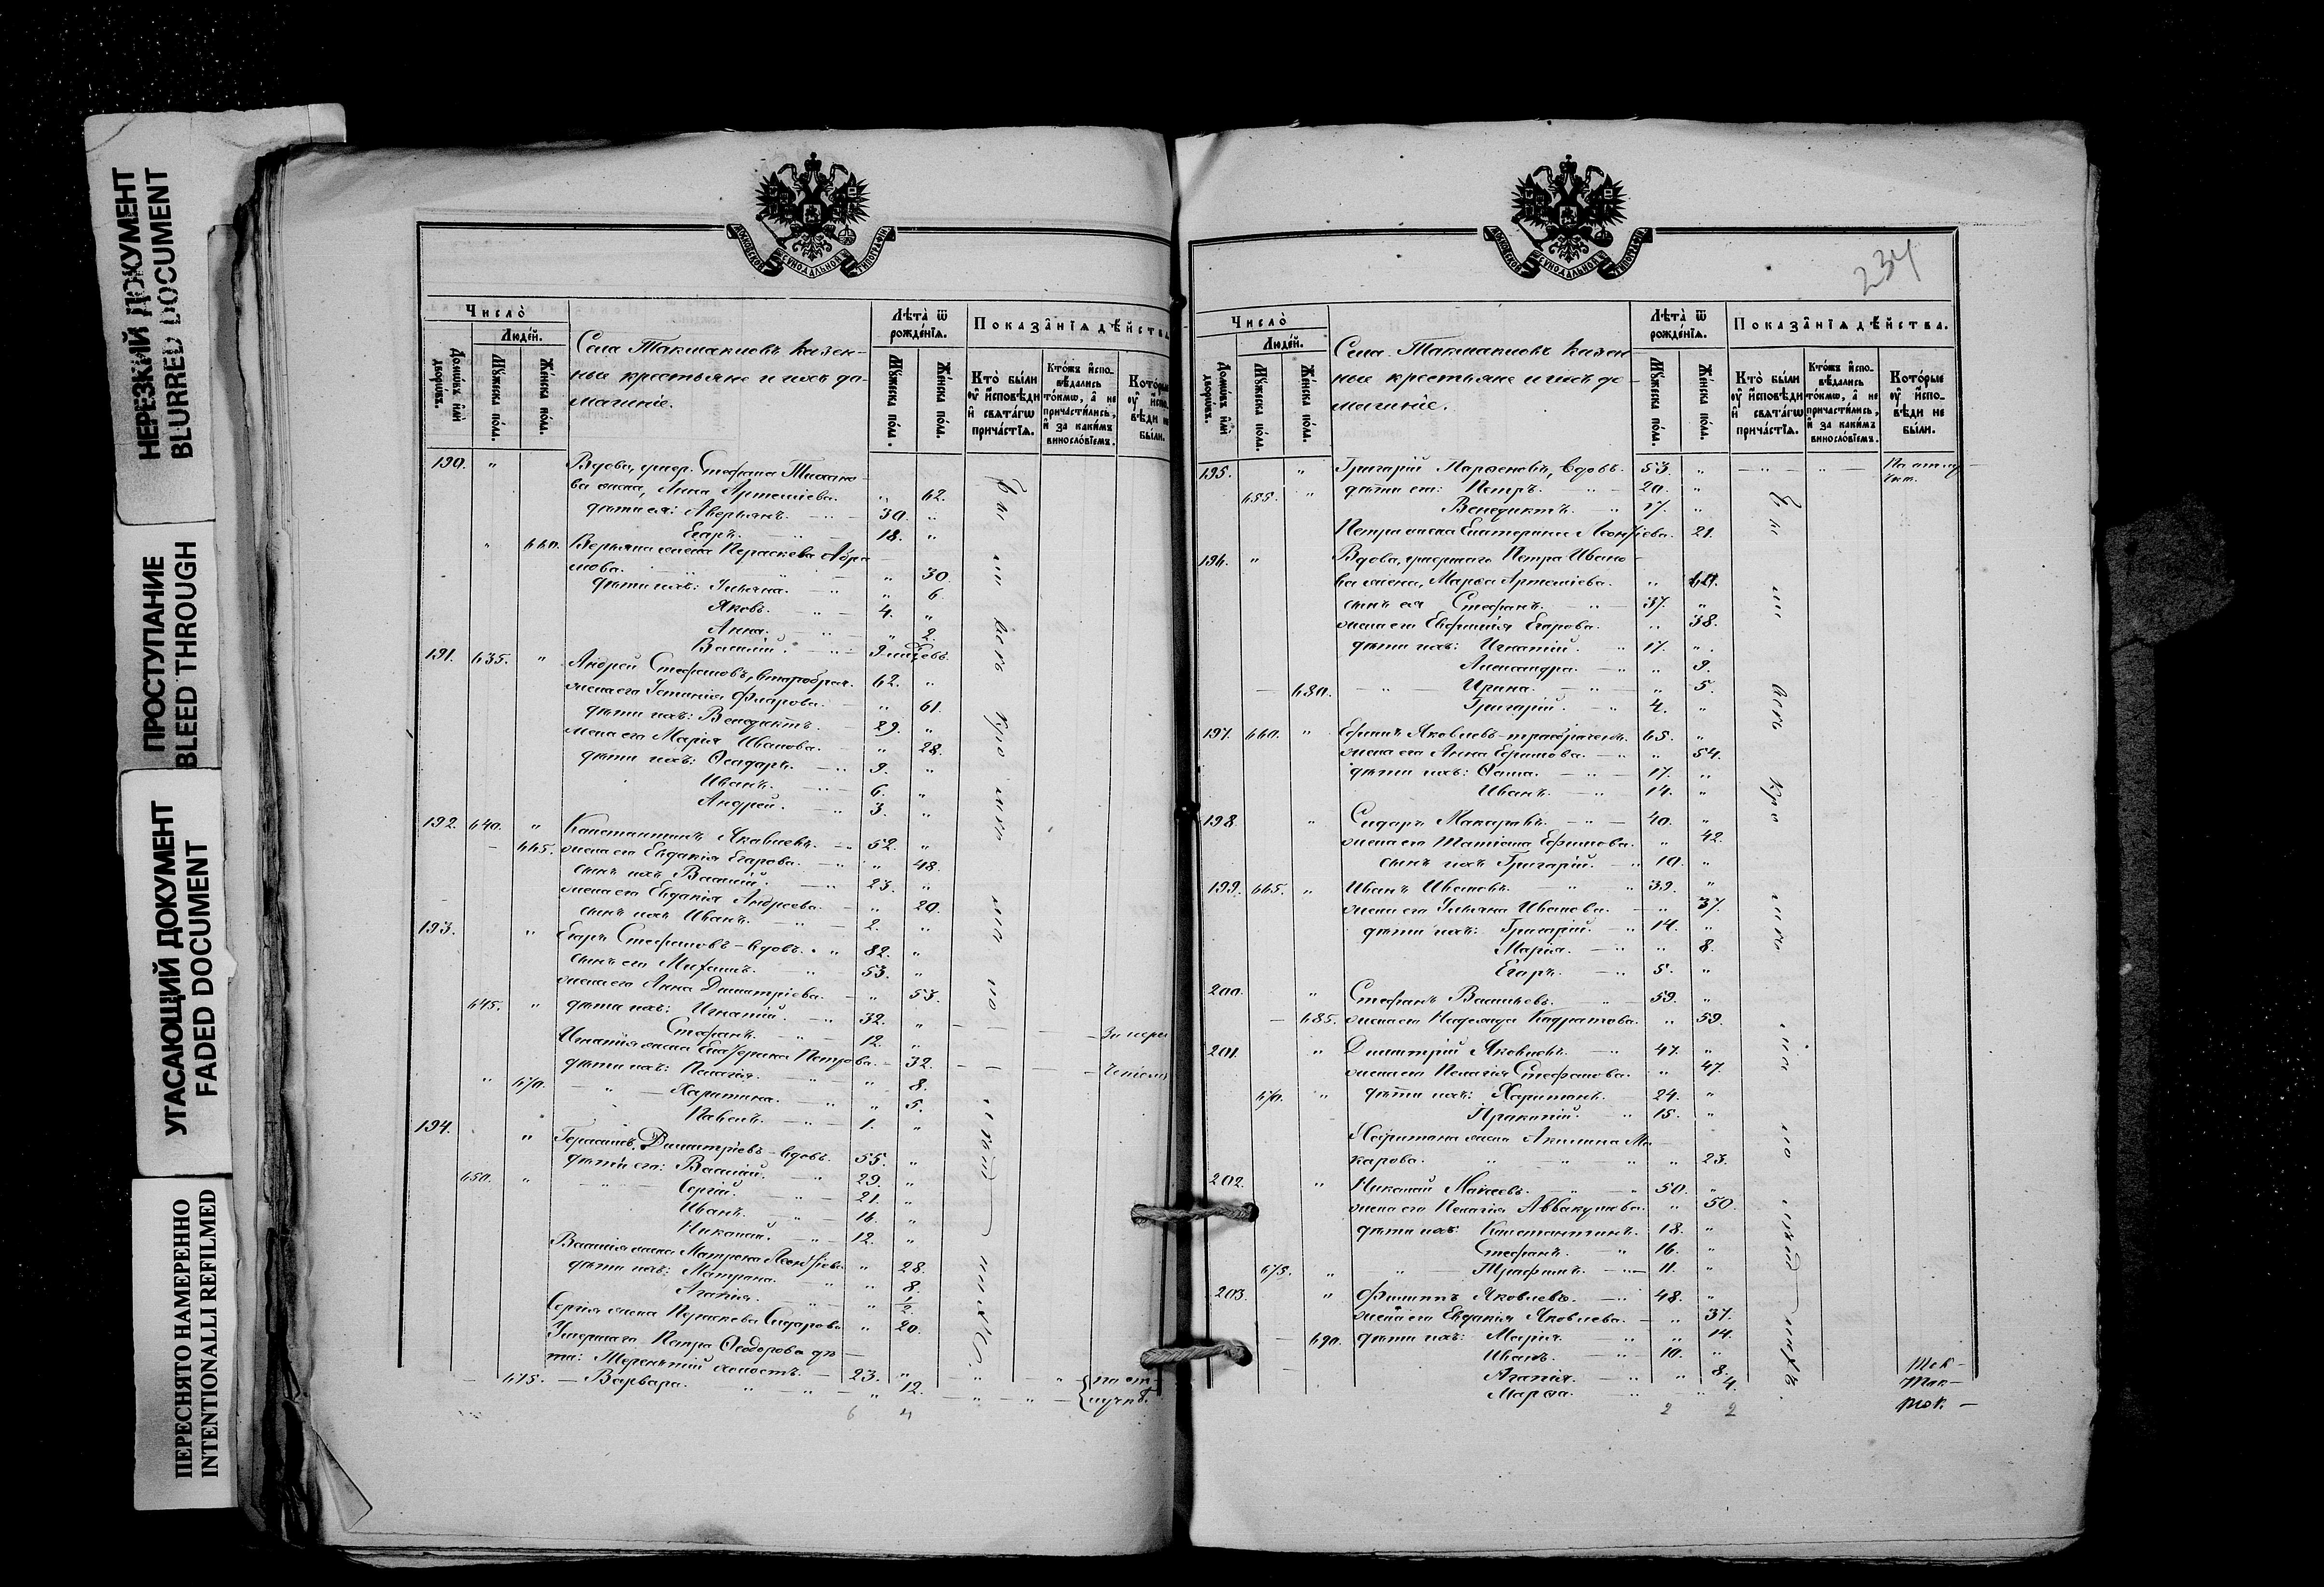 НЕРЕЗКИЙ ДОКУМЕНТ
BLURRED DOCUMENT
ПРОСТУПАНИЕ
BLEED THROUGH
УГАСАЮЩИЙ ДОКУМЕНТ
FADED DOCUMENT
ПЕРЕСНЯТО НАМЕРЕННО
INTENTIONALLI REFILMED
МОСКОВСКОЙ СѴНОДАЛЬНОЙ ТИПОГРАФІИ
Число̀
Люде́й.
Домѡ́въ и҆лѝ дворѡ́въ.
Мꙋ́жеска по́ла.
Же́нска по́ла.
Села Такмаклов Казен-
ные крестьяне и ихъ до-
машніе.
Лѣта̀ ѿ рожде́нїѧ.
Мꙋ́жеска по́ла.
Же́нска по́ла.
Показа̂нїѧ дѣ́йства
Кто̀ бы́ли ᲂу҆ и҆сповѣ́ди и҆ свѧта́гѡ прича́стїѧ.
Кто́жъ и҆спо-вѣ́дались то́кмѡ, а҆ не причасти́лись, и҆ за каки́мъ винословїемъ.
Кото́рые ᲂу҆ и҆спо-вѣ́ди не бы́ли.
190. " Вдова, умер. Стефана Тихано-
ва жена, Анна Артеміева. " 62.
дѣти ея: Аверьянъ. 30. "
Егоръ. 18. "
" 660. Верьяна жена Параскева Абра-
мова. " 30.
дѣти ихъ: Ульяна. " 6.
Яковъ. 4. "
Анна. " 2.
Василій.
191. 635. " Андрей Стефановъ, второбрач. 62. "
жена его Устинія Фларова. " 61.
дѣти ихъ: Венедиктъ. 29. "
жена его Марія Иванова. " 28.
дѣти ихъ: Ѳеодоръ. 9. "
Иванъ. 6. "
Андрей. 3. "
192. 640. " Константинъ Яковлевъ. 52. "
665. жена его Евдокія Егорова. " 48.
сынъ ихъ Василій. 23. "
жена его Евдокія Андреева. " 20.
сынъ ихъ Иванъ. 2. "
193. " Егоръ Стефановъ - вдовъ. 82. "
сынъ его Михаилъ. 53. "
жена его Анна Димитріева. " 53.
645. " дѣти ихъ: Игнатій. 32. "
Стефанъ. 12. "
Игнатія жена Екатерина Петрова. 32.
дѣти ихъ: Пелагія. " 8.
" 670. Харитина. " 5.
Павелъ. 1. "
194. " Герасимъ Димитріевъ - вдовъ. 55. "
дѣти его: Василій. 29. "
650. " Сергій. 21. "
Иванъ. 16. "
Николай. 12. "
Василія жена Матрона Леонтіева " 28.
дѣти ихъ: Матрона. " 8.
Агапія. " 1/2.
Сергія жена Параскева Сидорова " 20.
Умершаго Петра Ѳеодорова дѣ-
ти: Терентій холостъ. 23. "
675. Варвара. " 12. по от-
лучкѣ.
6 4
МОСКОВСКОЙ СѴНОДАЛЬНОЙ ТИПОГРАФІИ
234
Число̀
Люде́й.
Домѡ́въ и҆лѝ дворѡ́въ.
Мꙋ́жеска по́ла.
Же́нска по́ла.
Села Такмаклов Казен
ные крестьяне и ихъ до-
машніе.
Лѣта̀ ѿ рожде́нїѧ.
Мꙋ́жеска по́ла.
Же́нска по́ла.
Показа̂нїѧ дѣ́йства.
Кто̀ бы́ли ᲂу҆ и҆сповѣ́ди и҆ свѧта́гѡ прича́стїѧ.
Кто́жъ и҆спо-вѣ́дались то́кмѡ, а҆ не причасти́лись, и҆ за каки́мъ винословїемъ.
Кото́рые ᲂу҆ и҆спо-вѣ́ди не бы́ли.
195. " Григорій Парѳеновъ, вдовъ. 53. " По отлу-
655. " дѣти его: Петръ. 20. " чкѣ.
Венедиктъ. 17. "
Петра жена Екатерина Леонтіева. 21.
196. " Вдова, умершаго Петра Ивано-
ва жена, Марѳа Артеміева. " 60.
сынъ ея Стефанъ. 37. "
жена его Евфимія Егорова. " 38.
дѣти ихъ: Игнатій. 17. "
Александра. " 9.
680. Ирина. " 5.
Григорій. 4. "
197. 660. " Ефимъ Яковлевъ - 65. "
жена его Анна Ефимова. " 54.
дѣти ихъ: Ѳома. 17. "
Иванъ. 14. "
198. " Сидоръ Макаровъ. 40. "
жена его Татіана Ефимова. " 42.
сынъ ихъ Григорій. 10. "
199. 665. " Иванъ Ивановъ. 39. "
жена его Ульяна Иванова. " 37.
дѣти ихъ: Григорій. 14. "
Марія. " 8.
Егоръ. 5. "
200. " Стефанъ Васильевъ. 59. "
685. жена его Надежда Кадратова. " 59.
201. " Димитрій Яковлевъ. 47. "
жена его Пелагія Стефанова. " 47.
670. " дѣти ихъ: Харитонъ. 24. "
Прокопій. 15. "
Харитона жена Акилина Ма-
карова. " 23.
202. " Николай Макеевъ. 50. "
жена его Пелагія Аввакумова. " 50.
дѣти ихъ: Константинъ. 18. "
Стефанъ. 16. "
675. " Трофимъ. 11. "
203. " Филиппъ Яковлевъ. 48. "
жена его Евдокія Яковлева. " 37.
690. дѣти ихъ: Марія. " 14.
Иванъ. 10. "
Агапія. " 8.
Марѳа. " 4.
2 2